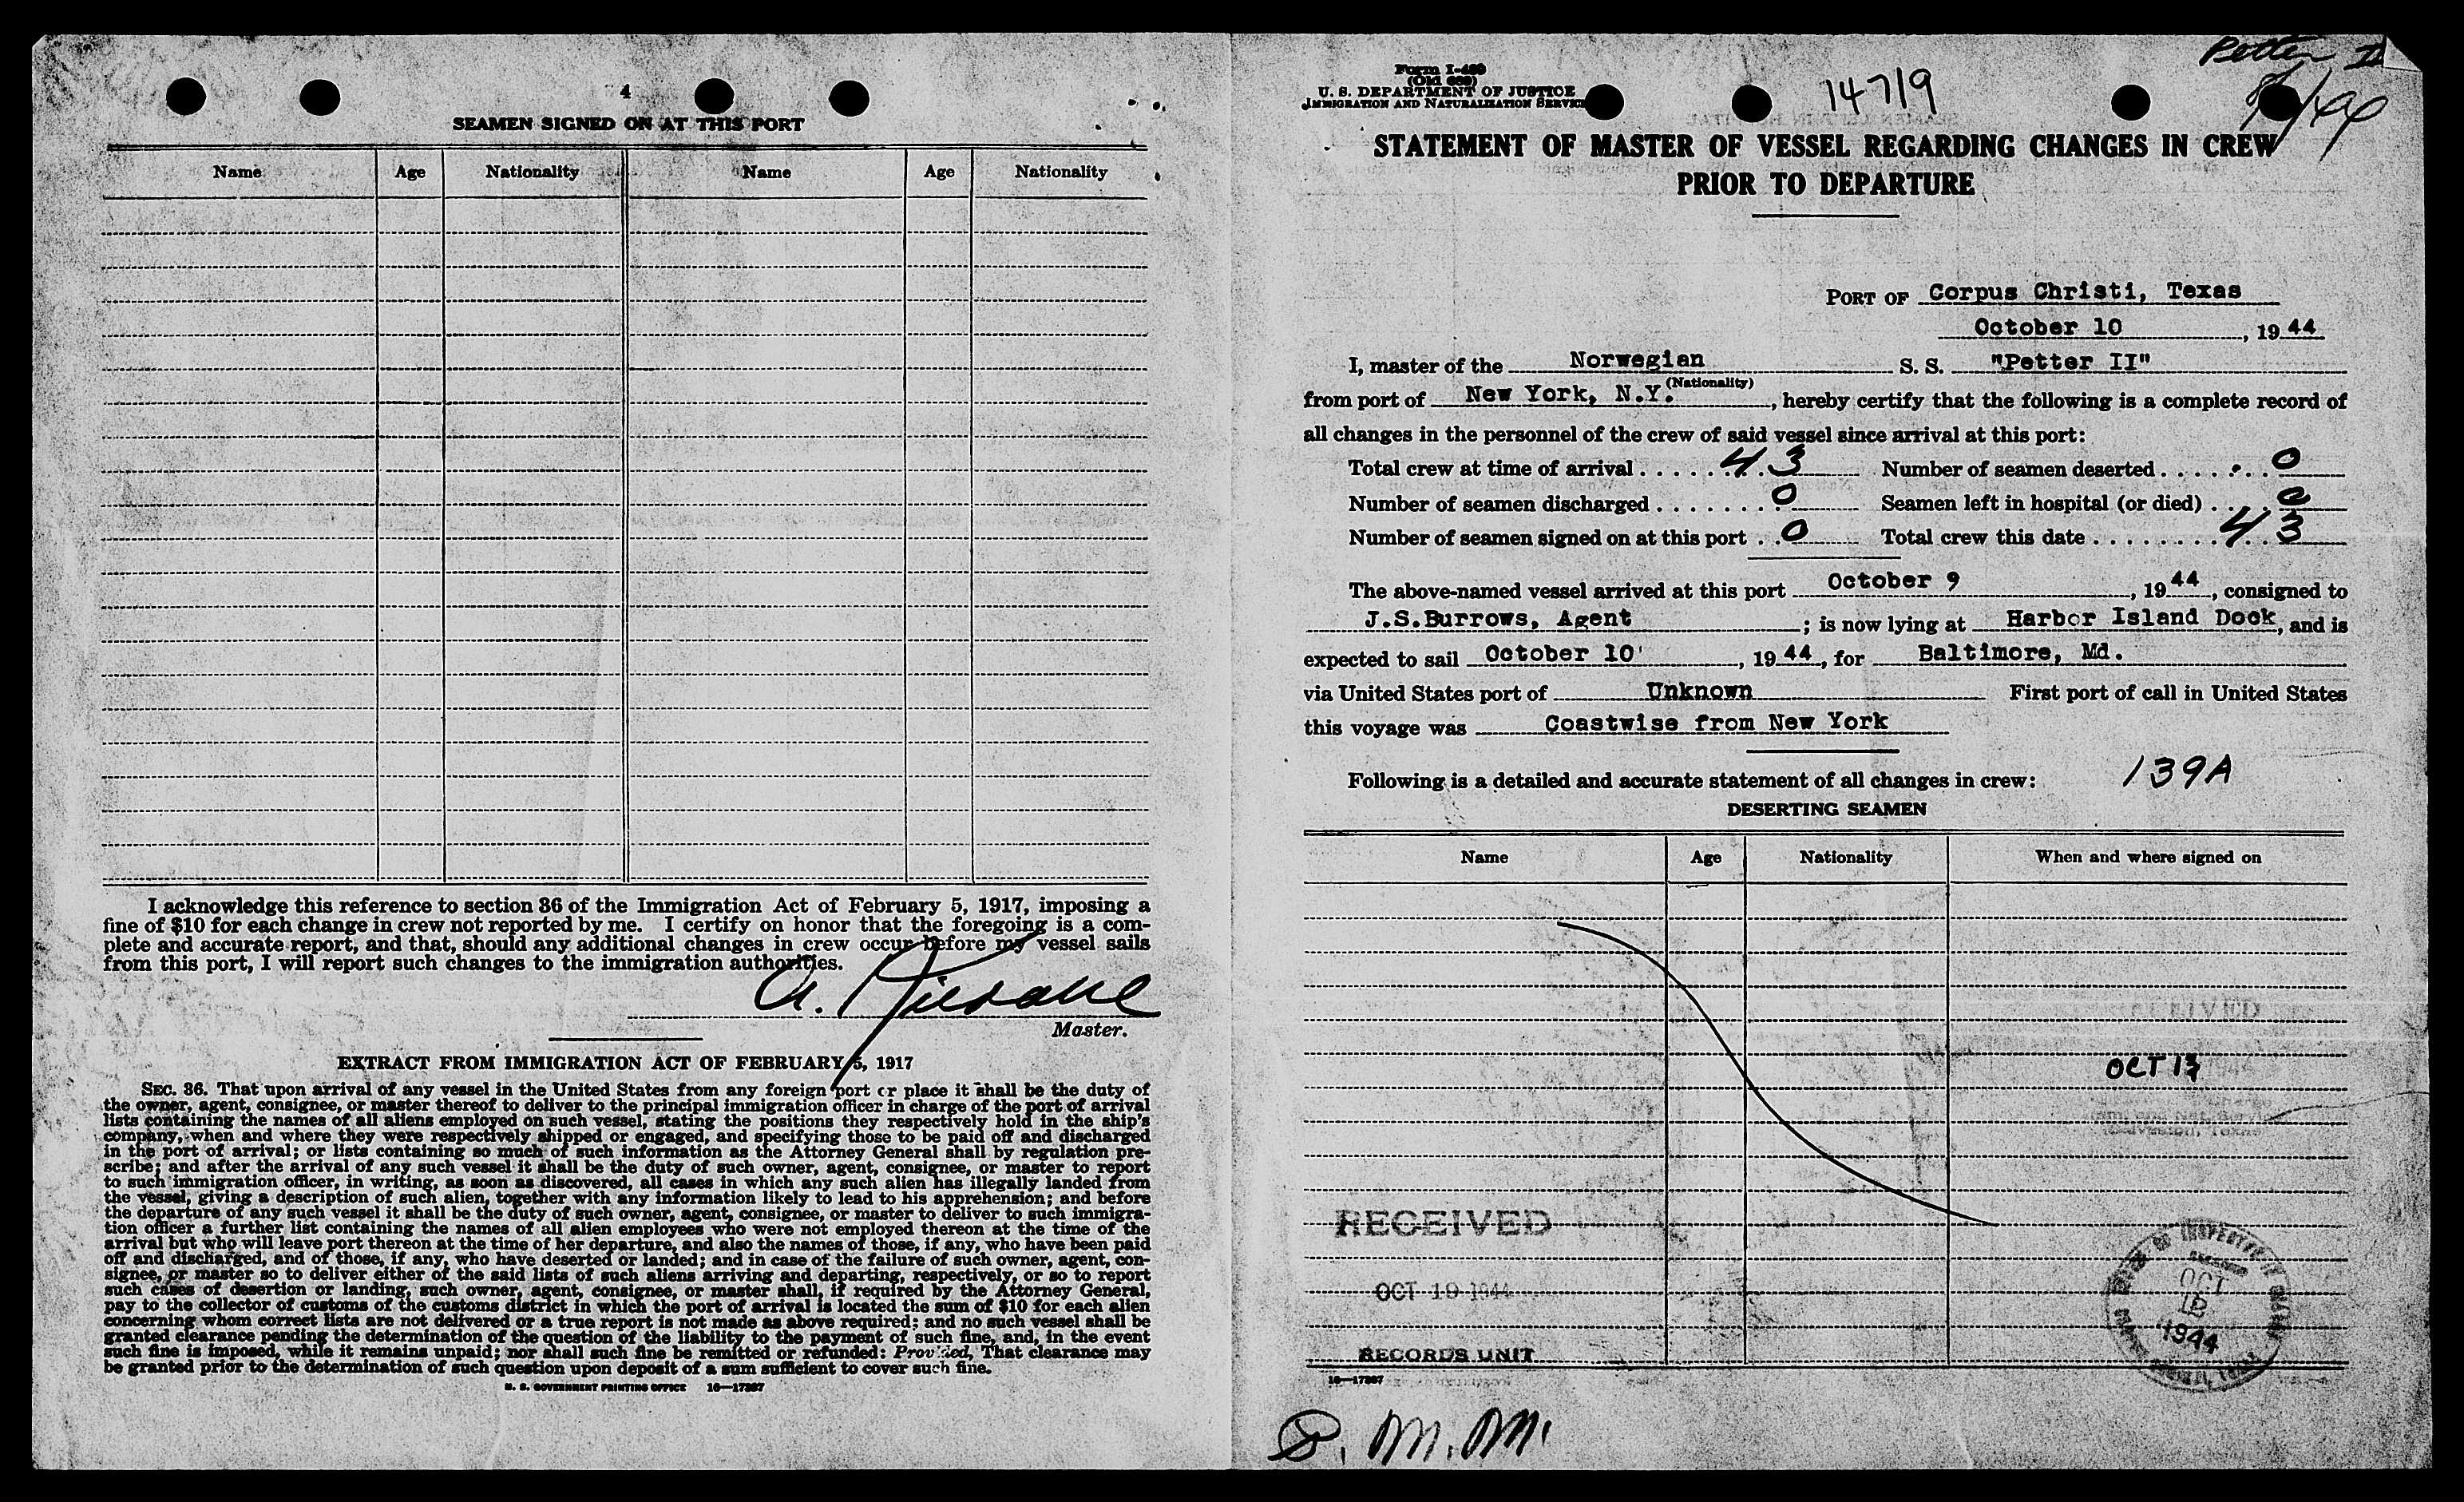 4
SEAMEN SIGNED ON AT THIS PORT
Name Age Nationality Name Age Nationality
I acknowledge this reference to section 36 of the Immigration Act of February 5, 1917, imposing a
fine of $10 for each change in crew not reported by me. I certify on honor that the foregoing is a com-
plete and accurate report, and that, should any additional changes in crew occur before my vessel sails
from this port, I will report such changes to the immigration authorities.
A.
Master.
EXTRACT FROM IMMIGRATION ACT OF FEBRUARY 5, 1917
SEC. 36. That upon arrival of any vessel in the United States from any foreign port or place it shall be the duty of
the owner, agent, consignee, or master thereof to deliver to the principal immigration officer in charge of the port of arrival
lists containing the names of all aliens employed on such vessel, stating the positions they respectively hold in the ship's
company, when and where they were respectively shipped or engaged, and specifying those to be paid off and discharged
in the port of arrival; or lists containing so much of such information as the Attorney General shall by regulation pre-
scribe; and after the arrival of any such vessel it shall be the duty of such owner, agent, consignee, or master to report
to such immigration officer, in writing, as soon as discovered, all cases in which any such alien has illegally landed from
the vessel, giving a description of such alien, together with any information likely to lead to his apprehension; and before
the departure of any such vessel it shall be the duty of such owner, agent, consignee, or master to deliver to such immigra-
tion officer a further list containing the names of all alien employees who were not employed thereon at the time of the
arrival but who will leave port thereon at the time of her departure, and also the names of those, if any, who have been paid
off and discharged, and of those, if any, who have deserted or landed; and in case of the failure of such owner, agent, con-
signee, or master so to deliver either of the said lists of such aliens arriving and departing, respectively, or so to report
such cases of desertion or landing, such owner, agent, consignee, or master shall, if required by the Attorney General,
pay to the collector of customs of the customs district in which the port of arrival is located the sum of $10 for each alien
concerning whom correct lists are not delivered or a true report is not made as above required; and no such vessel shall be
granted clearance pending the determination of the question of the liability to the payment of such fine, and, in the event
such fine is imposed, while it remains unpaid; nor shall such fine be remitted or refunded: Provided, That clearance may
be granted prior to the determination of such question upon deposit of a sum sufficient to cover such fine.
U. S. GOVERNMENT PRINTING OFFICE 16—17397
Petter II
Form I-489
(Old 689)
U. S. DEPARTMENT OF JUSTICE
IMMIGRATION AND NATURALIZATION SERVICE
14719
STATEMENT OF MASTER OF VESSEL REGARDING CHANGES IN CREW
PRIOR TO DEPARTURE
PORT OF Corpus Christi, Texas
October 10, 1944
I, master of the Norwegian S. S. "Petter II"
(Nationality)
from port of New York, N.Y., hereby certify that the following is a complete record of
all changes in the personnel of the crew of said vessel since arrival at this port:
Total crew at time of arrival 43 Number of seamen deserted 0
Number of seamen discharged 0 Seamen left in hospital (or died) 0
Number of seamen signed on at this port 0 Total crew this date 43
The above-named vessel arrived at this port October 9, 1944, consigned to
J.S.Burrows, Agent; is now lying at Harbor Island Dock, and is
expected to sail October 10, 1944, for Baltimore, Md.
via United States port of Unknown First port of call in United States
this voyage was Coastwise from New York
Following is a detailed and accurate statement of all changes in crew: 139A
DESERTING SEAMEN
Name Age Nationality When and where signed on
RECEIVED
OCT 13 1944
RECEIVED
OCT 19 1944
RECORDS UNIT
OCT
1944
16—17397